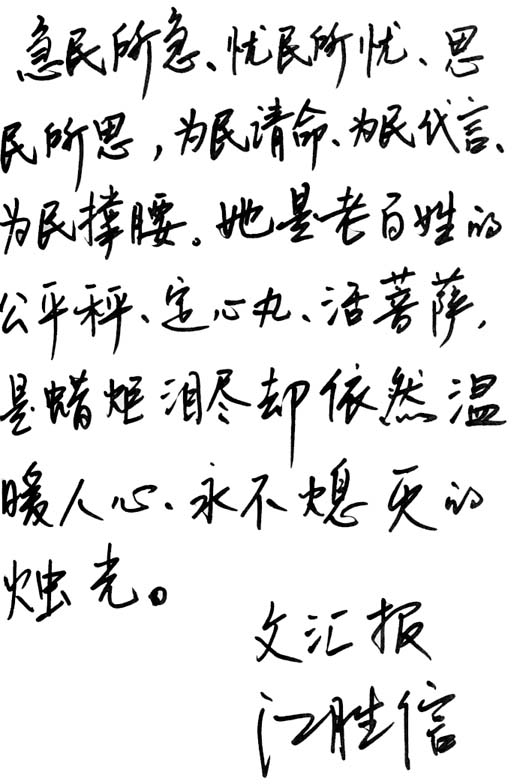 急民所急、忧民所忧、思
民所思,为民请命、为民代言、
为民撑腰。她是老百姓的
公平秤、定心丸、活菩萨,
是蜡炬泪尽却依然温
暖人心、永不熄灭的
烛光。
文汇报
江胜信